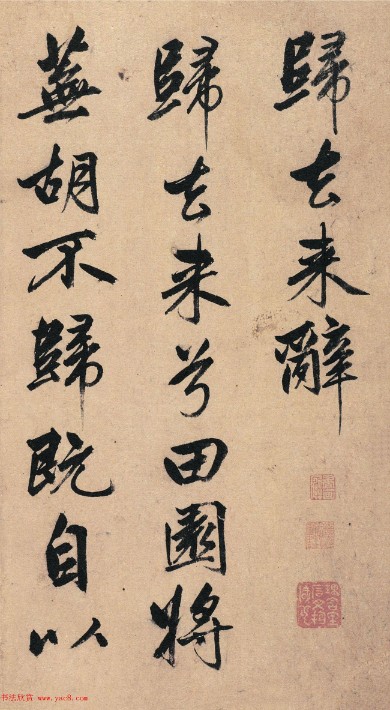 歸去来辭
歸去来兮田園將
蕪胡不歸既自以
书法欣赏 www.yac8.com